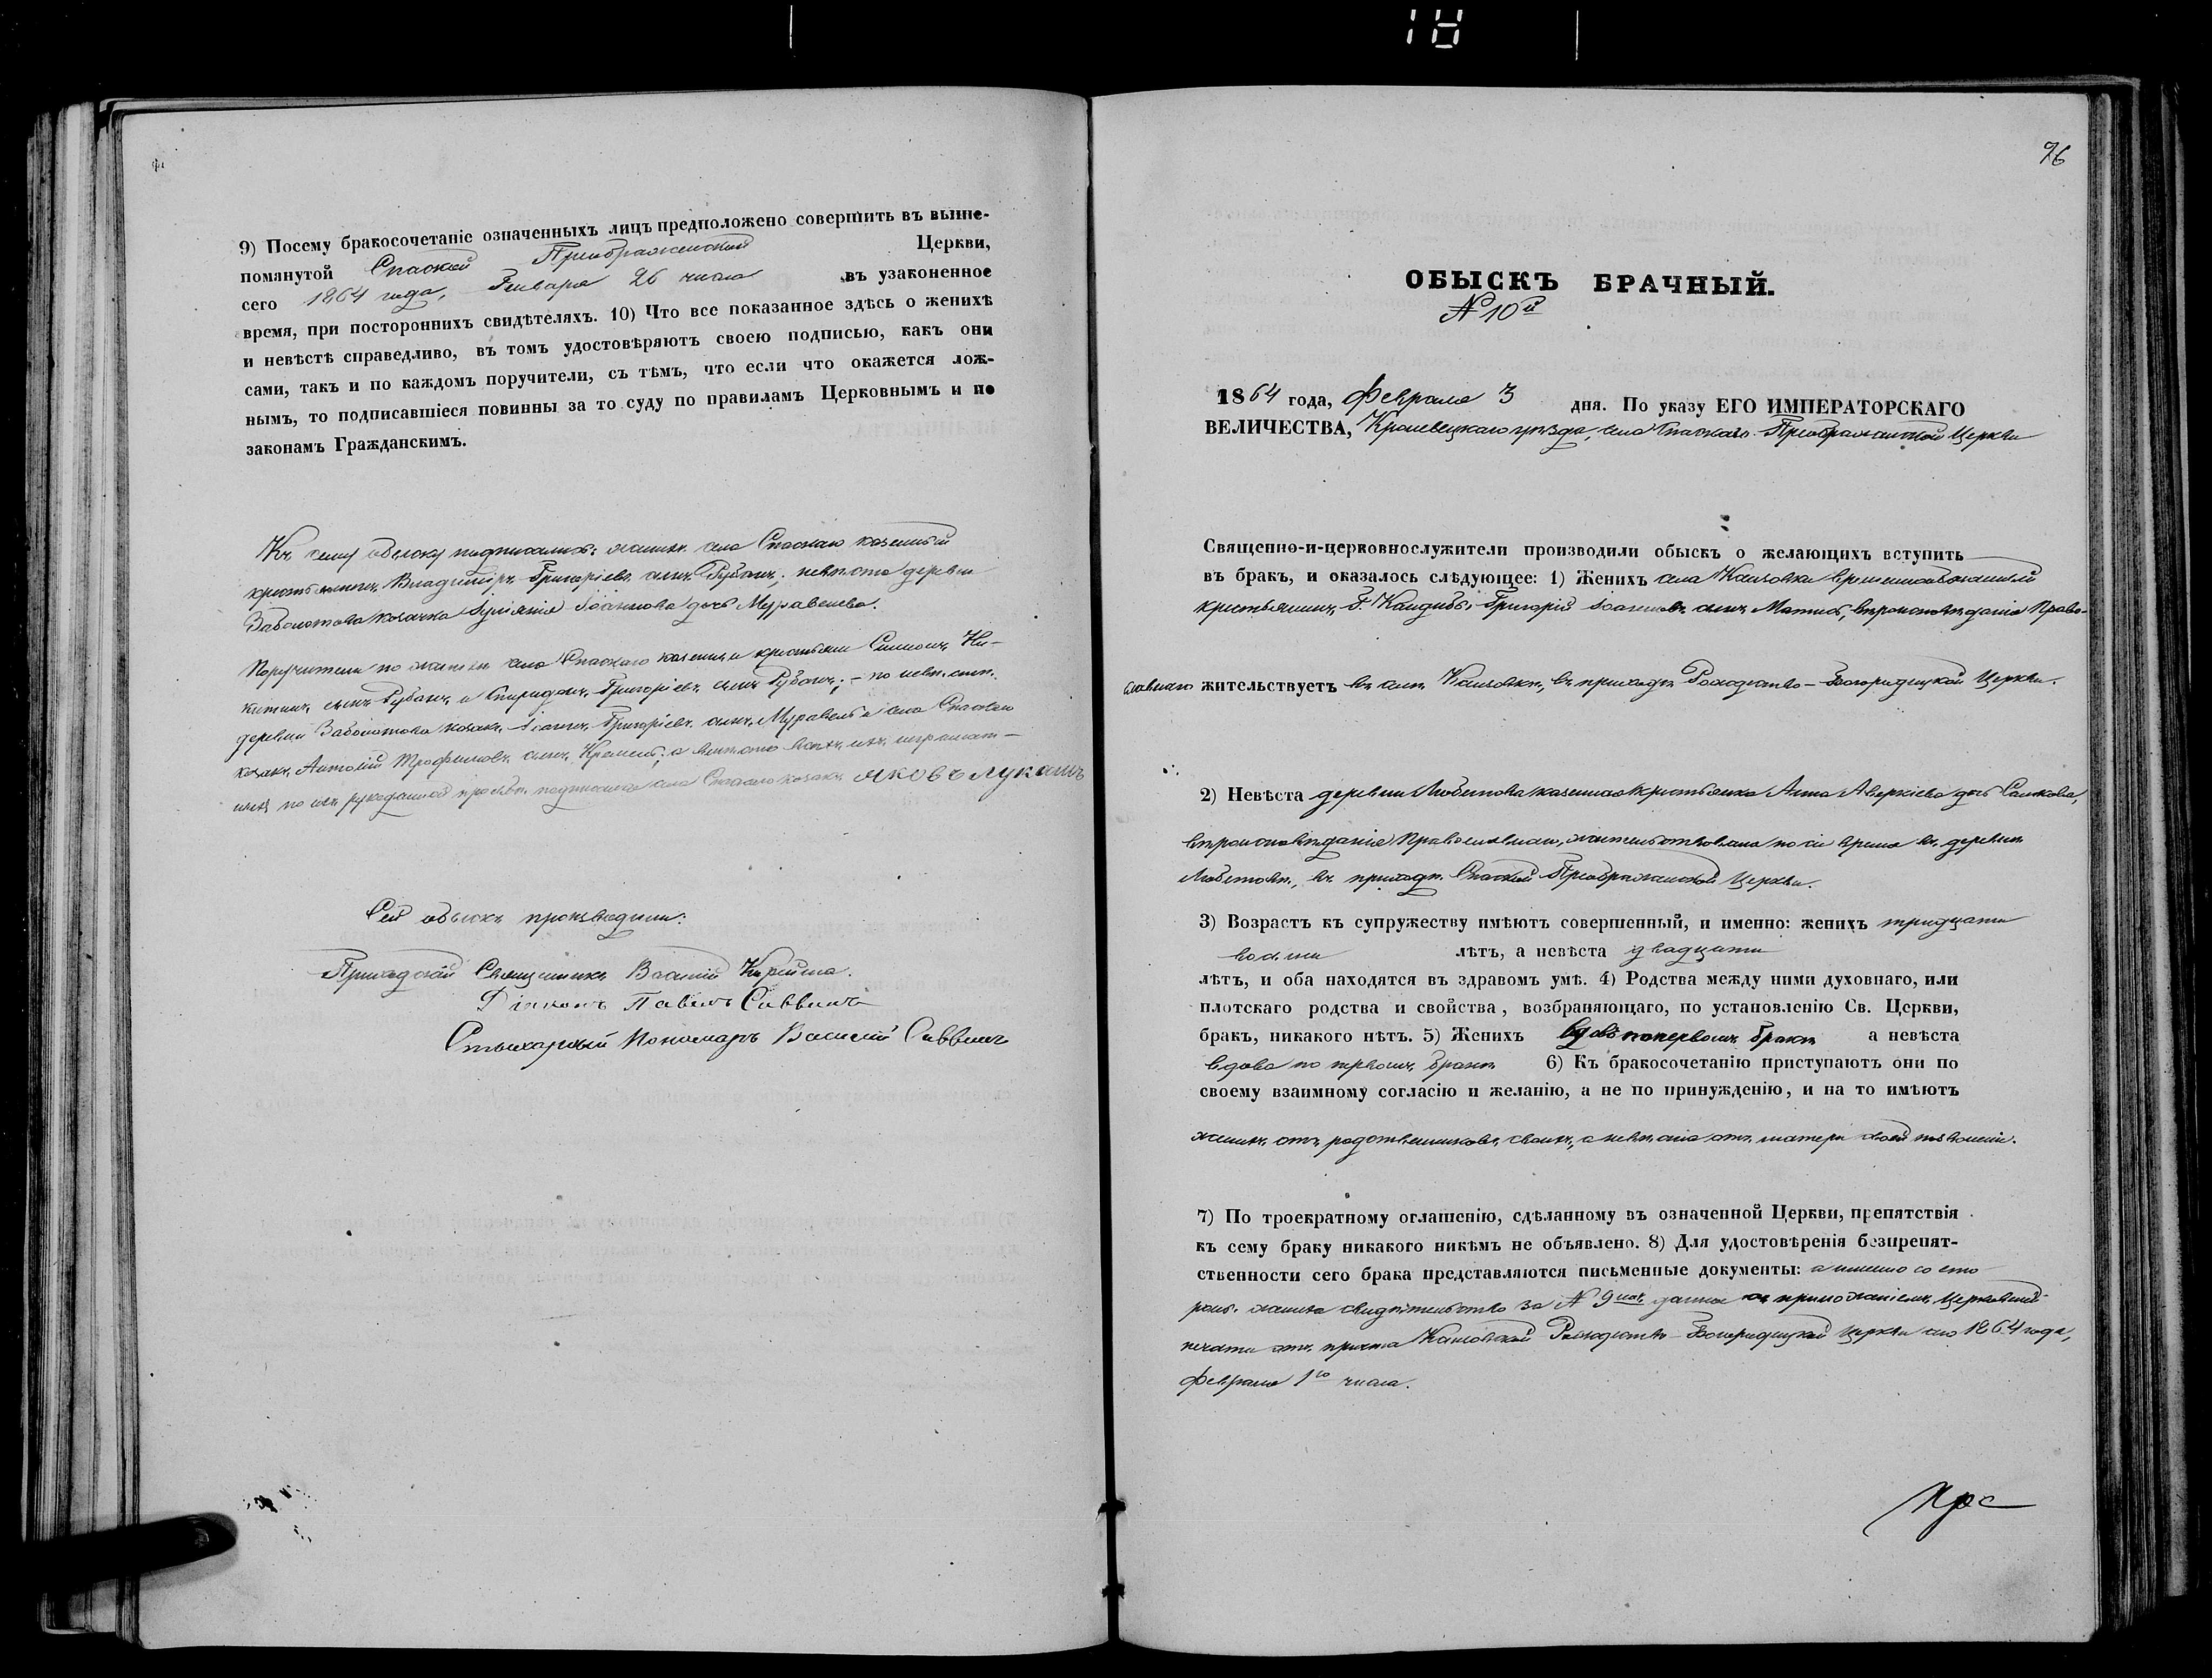 9) Посему бракосочетаніе означенныхъ лицъ предположено совершить въ выше-
помянутой Спаской Преображенской Церкви,
сего 1864 года, Генваря 26 числа въ узаконенное
время, при постороннихъ свидѣтеляхъ. 10) Что все показанное здѣсь о женихѣ
и невѣстѣ справедливо, въ томъ удостовѣряютъ своею подписью, какъ они
сами, такъ и по каждомъ поручители, съ тѣмъ, что если что окажется лож-
нымъ, то подписавшіеся повинны за то суду по правиламъ Церковнымъ и по
законамъ Гражданскимъ.
Къ сему обыску подписались: женихъ села Спаскаго казенный
крестьянинъ Владиміръ Григоріевъ сынъ Рубанъ; невѣста деревни
Заболотова козачка Іуліанія Іоаннова дочь Муравьева.
Поручители по женихѣ села Спаскаго казенные крестьяне Симеонъ Ни-
китинъ сынъ Рубанъ, и Спиридонъ Григоріевъ сынъ Рубанъ; – по невѣстѣ
деревни Заболотова козакъ Іоаннъ Григоріевъ сынъ Муравель и села Спаскаго
козакъ Антоній Трофимовъ сынъ Кремень; а вмѣсто всѣхъ ихъ неграмот-
ныхъ по ихъ рукоданной прозьбѣ подписался села Спаскаго козакъ Яковъ Лукашъ
Сей обыскъ производили:
Приходскій Священникъ Василій
Діаконъ Павелъ Саввичъ
Стихарный Пономарь Василій Саввичъ
96
ОБЫСКЪ БРАЧНЫЙ.
№ 10й
1864 года, Февраля 3 дня. По указу ЕГО ИМПЕРАТОРСКАГО
ВЕЛИЧЕСТВА, Кролевецкаго уѣзда, села Спаскаго Преображенской Церкви
Священно-и-церковнослужители производили обыскъ о желающихъ вступить
въ бракъ, и оказалось слѣдующее: 1) Женихъ села временнообязанный
крестьянинъ Г. Кандибы Григорій Іоанновъ сынъ вѣроисповѣданія Право-
славнаго жительствуетъ въ селѣ въ приходѣ Рождество-Богородицкой Церкви.
2) Невѣста деревни Любитова казенная крестьянка Анна Аверкіева дочь
вѣроисповѣданія Православнаго, жительствовала по сіе время въ деревнѣ
Любитовѣ, въ приходѣ Спаской Преображенской Церкви.
3) Возрастъ къ супружеству имѣютъ совершенный, и именно: женихъ тридцати
восьми лѣтъ, а невѣста двадцати
лѣтъ, и оба находятся въ здравомъ умѣ. 4) Родства между ними духовнаго, или
плотскаго родства и свойства, возбраняющаго, по установленію Св. Церкви,
бракъ, никакого нѣтъ. 5) Женихъ вдовъ по первомъ бракѣ а невѣста
вдова по первомъ бракѣ 6) Къ бракосочетанію приступаютъ они по
своему взаимному согласію и желанію, а не по принужденію, и на то имѣютъ
женихъ отъ родственниковъ своихъ, а невѣста отъ матери своей позволеніе.
7) По троекратному оглашенію, сдѣланному въ означенной Церкви, препятствія
къ сему браку никакого никѣмъ не объявлено. 8) Для удостовѣренія безпрепят-
ственности сего брака представляются письменные документы: а именно со сто
роны жениха свидѣтельство за № 9 данное съ приложеніемъ Церковной
печати отъ причта Рождество-Богородицкой Церкви сего 1864 года,
Февраля 1го числа.